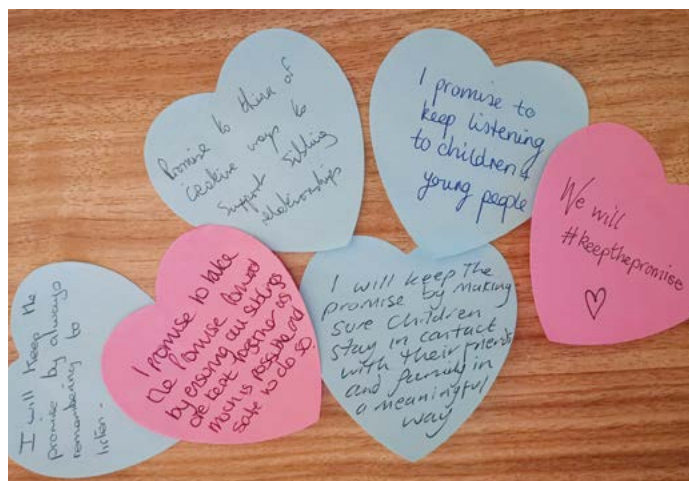 Promise to think of
creative ways to
support sibling
relationships
I promise to
keep listening
to children +
young people
We will
#keepthepromise
I will keep the
promise by always
remembering to
listen.
I promise to take
the promise forward
by ensuring our siblings
are kept together as
much is possible and
safe to do so.
I will keep the
promise by making
sure children
stay in contact
with their friends
and family in
a meaningful
way